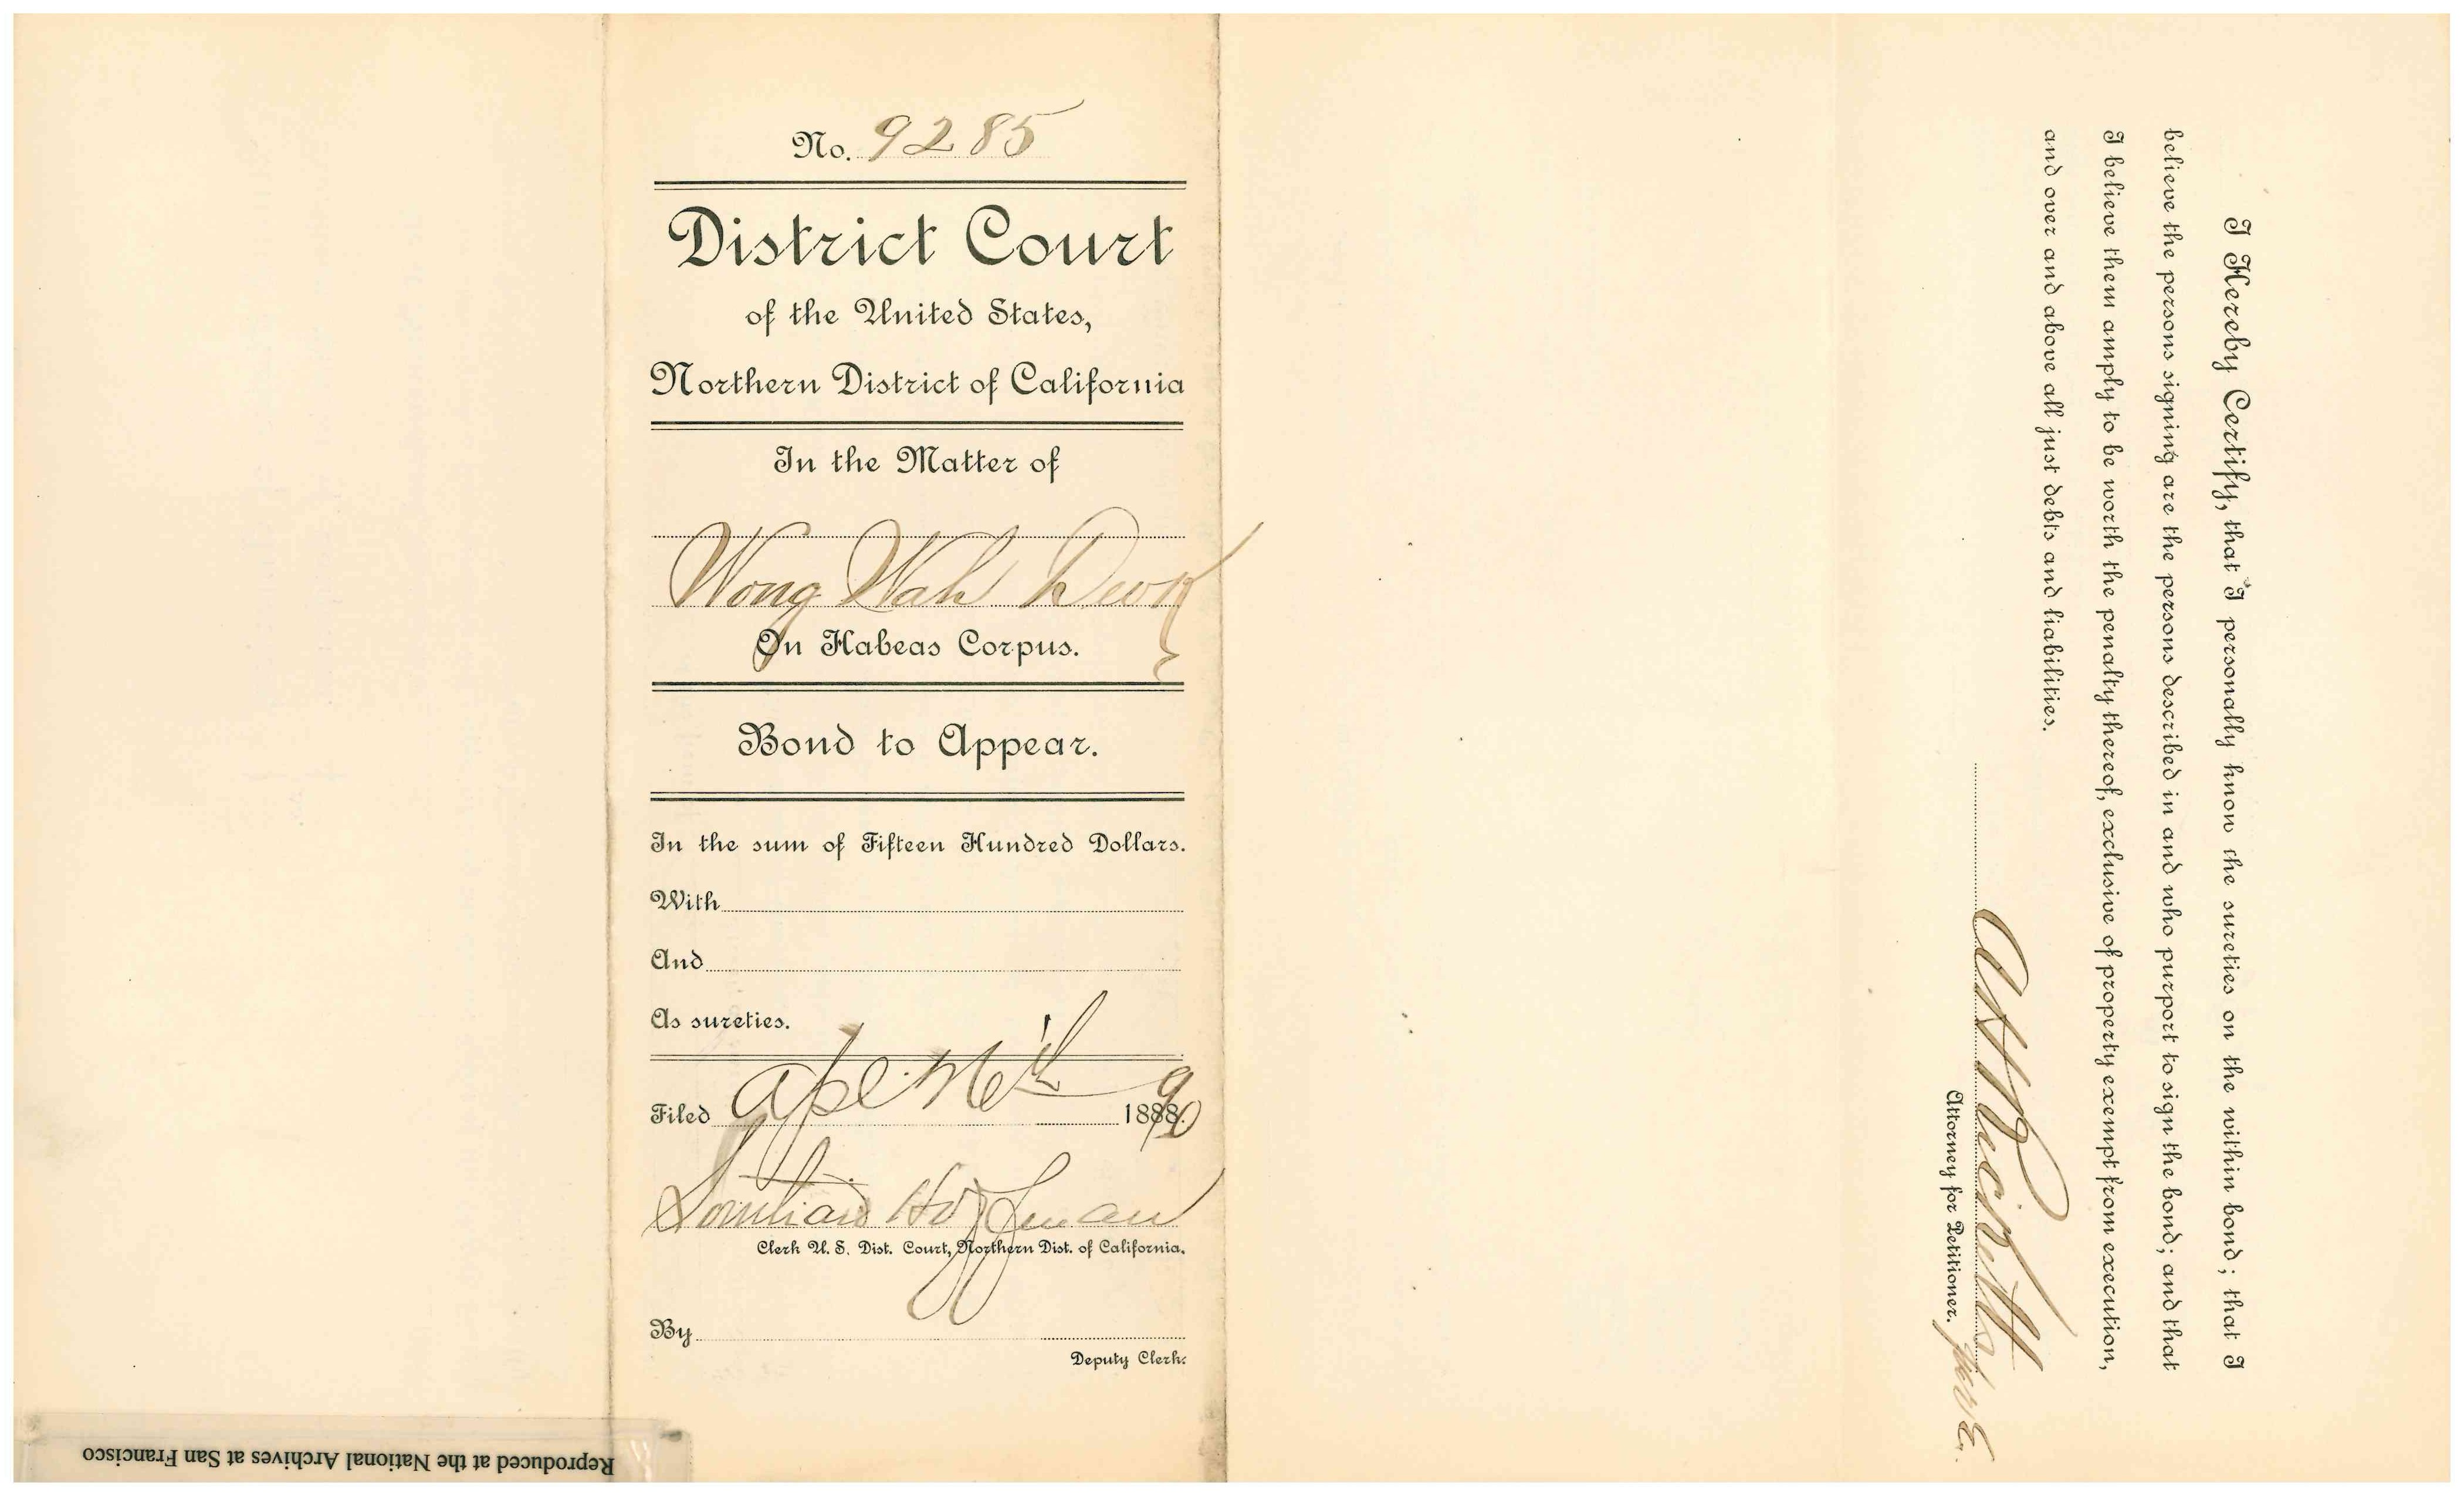 No. 9285
District Court
of the United States,
Northern District of California
In the Matter of
Wong Wah
On Habeas Corpus.
Bond to Appear.
In the sum of Fifteen Hundred Dollars.
With
And
As sureties.
Filed Apl. 16th 1888. 90
Southard Hoffman
Clerk U. S. Dist. Court, Northern Dist. of California.
By
Deputy Clerk.
I Hereby Certify, that I personally know the sureties on the within bond; that I
believe the persons signing are the persons described in and who purport to sign the bond; and that
I believe them amply to be worth the penalty thereof, exclusive of property exempt from execution,
and over and above all just debts and liabilities.
Attorney for Petitioner.
Reproduced at the National Archives at San Francisco